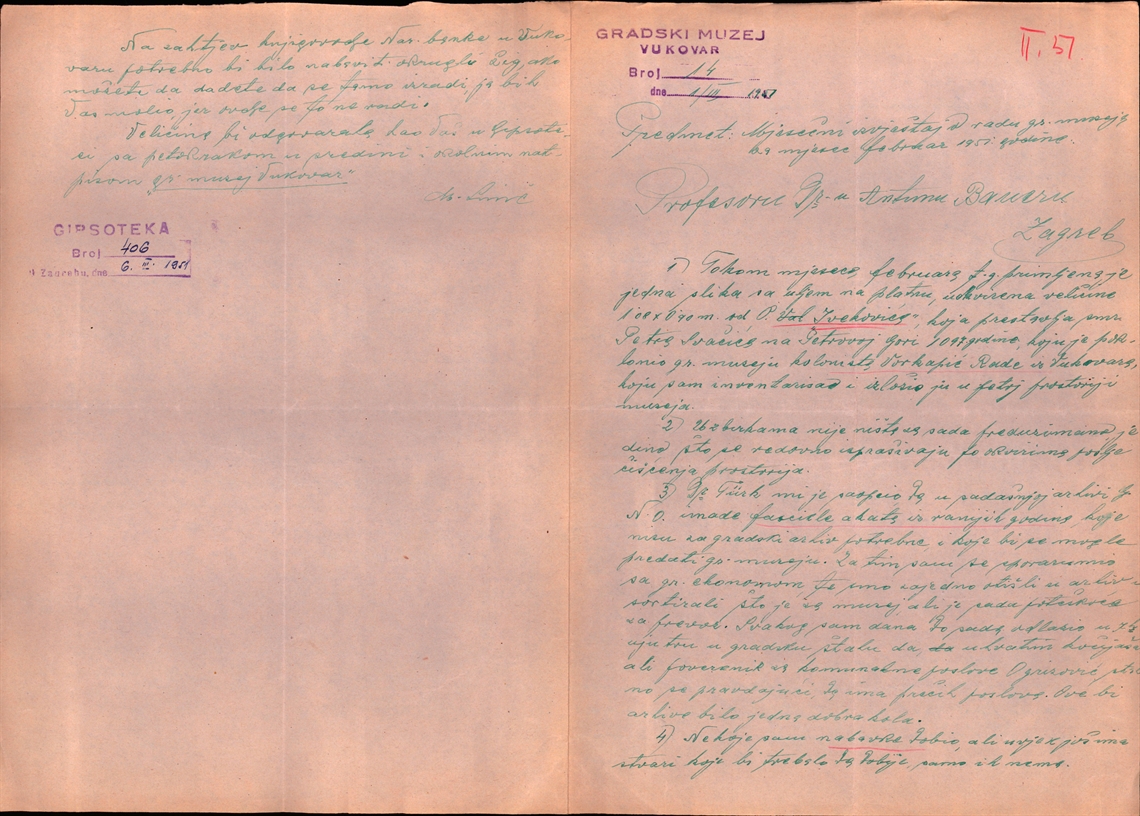 Na zahtjev knjigovodje Nar. banke u Vuko-
varu potrebno bi bilo nabaviti okrugli žig, ako
možete da dadete da se tamo izradi ja bih
Vas molio, jer ovdje se to ne radi.
Veličina bi odgovarala kao Vaš u Gipsote-
ci sa petokrakom u sredini i okolnim nat-
pisom "gr. muzej Vukovar"
GIPSOTEKA
Broj 406
U Zagrebu, dne 6. III. 1951
GRADSKI MUZEJ
VUKOVAR
Broj 14
dne 1/III 1951
II. 51
Predmet: Mjesečni izvještaj o radu gr. muzeja
za mjesec februar 1951. godine.
Profesoru Dr-u Antunu Baueru
Zagreb
1) Tokom mjeseca februara t.g. primljena je
jedna slika sa uljem na platnu, uokvirena veličine
od O. Ivekovića", koja prestavlja smrt
Petra Svačića na Petrovoj Gori 1097 godine, koju je pok-
lonio gr. museju kolonista Vorkapić Rade iz Vukovara,
koju sam inventarisao i izložio ju u petoj prostoriji
museja.
2) U zbirkama nije ništa za sada preduzimano je
dino što se redovno isprašivaju po okvirima poslje
čišćenja prostorija.
3) Dr. Türk mi je saopćio da u sadašnjoj arhivi G.
N. O. imade fascicle akata iz ranijih godina, koje
nisu za gradski arhiv potrebne, i koje bi se mogle
predati gr. museju. Za tim sam se sporazumio
sa gr. ekonomom, te smo zajedno otišli u arhiv i
sortirali što je za musej ali je sada poteškoća
za prevoz. Svakog sam dana do sada odlazio u 7 h
ujutru u gradsku štalu da, da uhvatim kočijaša
ali poverenik za komunalne poslove Ogrizović, st
no se pravdajući, da ima prečih poslova. Ove bi
arhive bilo jedna dobra kola.
4) Nekoje sam nabavke dobio, ali uvjek još ima
stvari koje bi trebalo da dobije, samo ih nema.